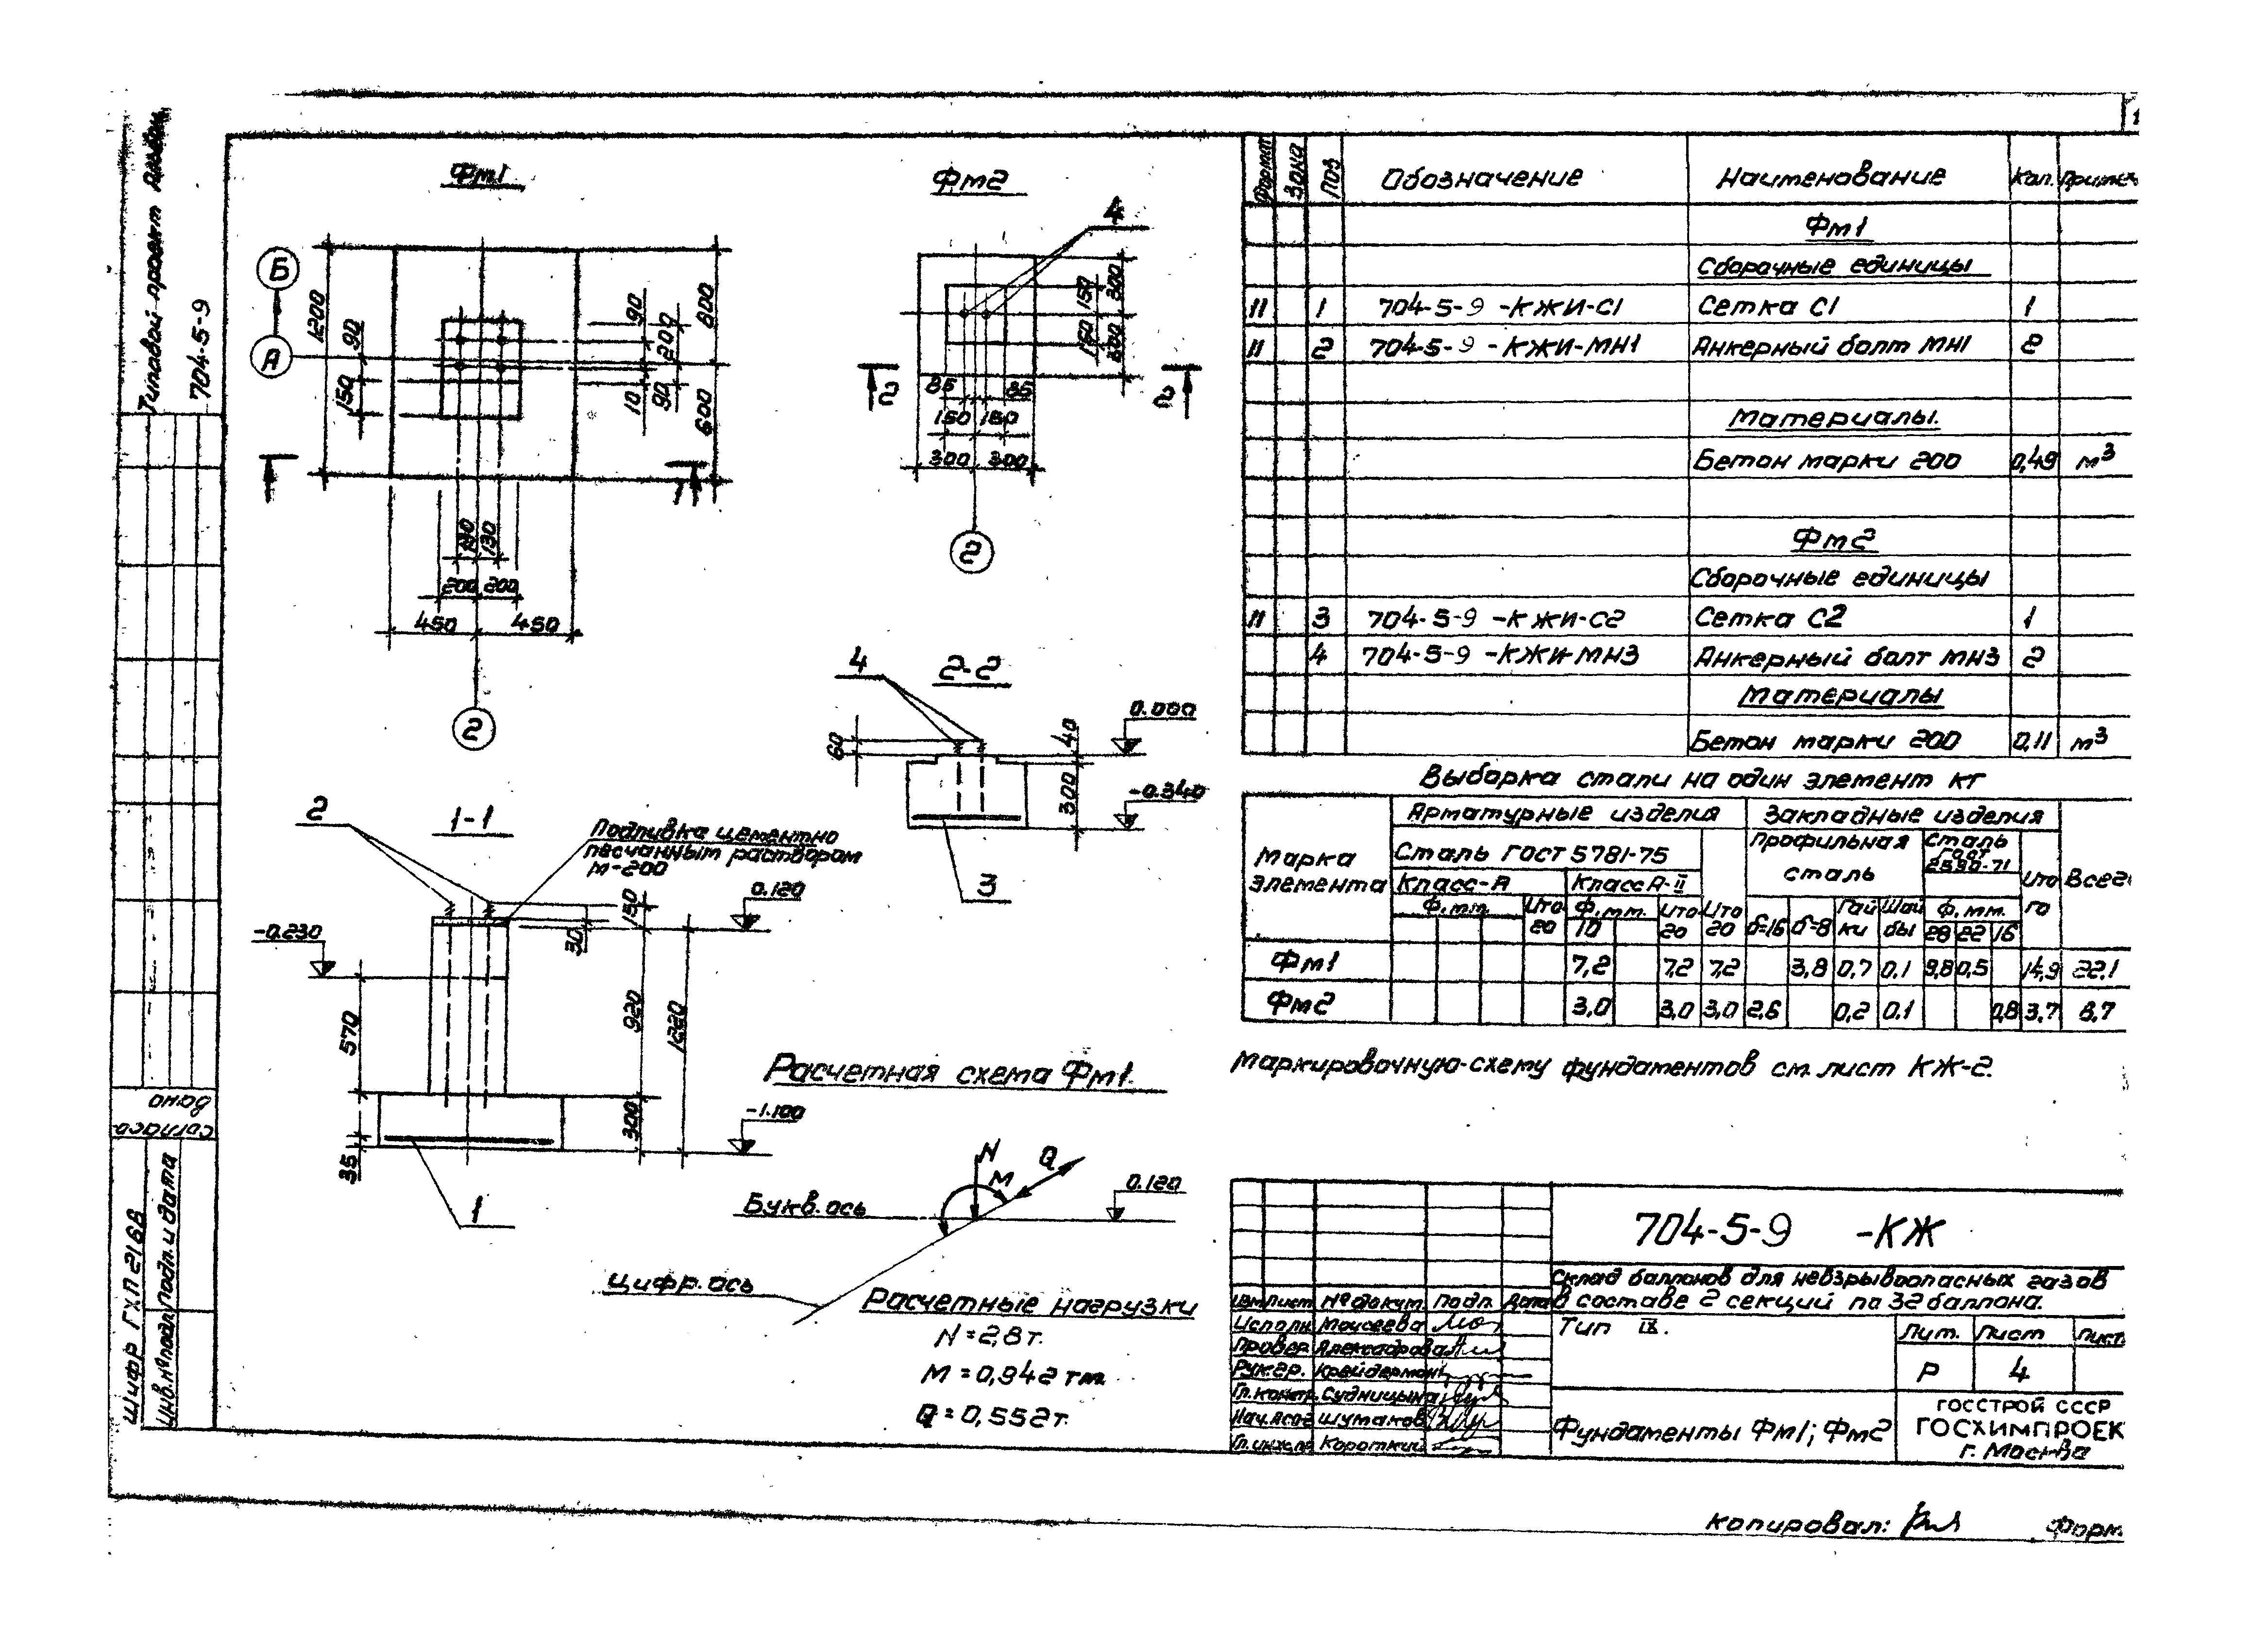 Типовой проект Альбом
704-5-9
Фм1
Б
А
1200
90
150
90
200
800
10
90
600
130 130
200 200
450 450
2
1
Фм2
4
150
300
150
300
2
2
85 85
150 150
300 300
2
1-1
2
Подливка цементно
песчанным раствором
М-200
0.120
-0.230
150
30
570
920
1220
300
35
-1.100
1
2-2
4
60
40
0.000
300
-0.340
3
Расчетная схема Фм1.
N
M
Q
0.120
Букв. ось
Цифр. ось
Расчетные нагрузки
N=2,8т.
M=0,942тм.
Q=0,552т.
Формат Зона Поз Обозначение Наименование Кол. Примеч
Фм1
Сборочные единицы
11 1 704-5-9 -КЖИ-С1 Сетка С1 1
11 2 704-5-9 -КЖИ-МН1 Анкерный болт МН1 2
Материалы.
Бетон марки 200 0,49 м³
Фм2
Сборочные единицы
11 3 704-5-9 -КЖИ-С2 Сетка С2 1
4 704-5-9 -КЖИ-МН3 Анкерный болт МН3 2
Материалы
Бетон марки 200 0,11 м³
Выборка стали на один элемент кг
Марка элемента
Арматурные изделия Закладные изделия
Сталь ГОСТ 5781-75 Профильная сталь Сталь ГОСТ 2590-71 Ито го Всего
Класс-А Класс А-II
Ф, мм. Ито го Ф, мм. Ито го Ито го δ=16 δ=8 Гай ки Шай бы Ф. мм.
10 28 22 16
Фм1 7,2 7,2 7,2 3,8 0,7 0,1 9,8 0,5 14,9 22,1
Фм2 3,0 3,0 3,0 2,6 0,2 0.1 0,8 3,7 6,7
Маркировочную схему фундаментов см. лист КЖ-2.
704-5-9 -КЖ
Склад баллонов для невзрывоопасных газов
в составе 2 секций по 32 баллона.
Тип IX.
Изм Лист № докум. Подп. Дата
Исполн. Моисеева
Провер. Александрова
Рук.гр. Крейдерман
Гл.контр. Судницына
Нач.АСО2 Шутаков
Гл.инж.пр Короткий
Лит. Лист Лист
Р 4
Фундаменты Фм1; Фм2
ГОССТРОЙ СССР
ГОСХИМПРОЕК
г. Москва
Копировал:
Форм.
Согласовано
Инв.№подл. Подп. и дата
Шифр ГХП 2168